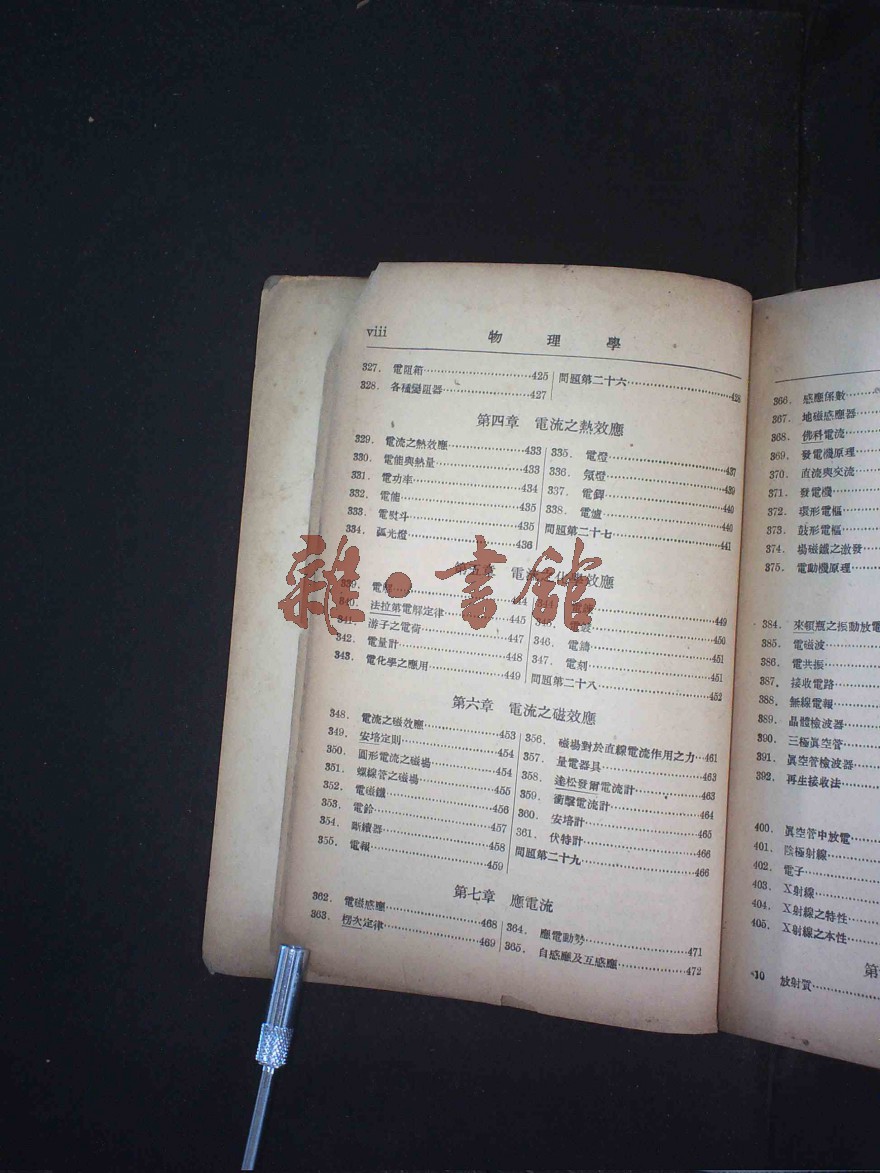 viii 物理學
327. 電阻箱 425
328. 各種變阻器 427
問題第二十六 428
第四章 電流之熱效應
329. 電流之熱效應 433
330. 電能與熱量 433
331. 電功率 434
332. 電能 435
333. 電熨斗 435
334. 弧光燈 436
335. 電燈 437
336. 氖燈 439
337. 電銲 440
338. 電爐 440
問題第二十七 441
第五章 電流之化學效應
339. 電解 444
340. 法拉第電解定律 445
341. 游子之電荷 447
342. 電量計 448
343. 電化學之應用 449
449
345. 電鍍 450
346. 電鑄 451
347. 電刻 451
問題第二十八 452
第六章 電流之磁效應
348. 電流之磁效應 453
349. 安培定則 454
350. 圓形電流之磁場 454
351. 螺線管之磁場 455
352. 電磁鐵 456
353. 電鈴 457
354. 斷續器 458
355. 電報 459
356. 磁場對於直線電流作用之力 461
357. 量電器具 463
358. 達松發爾電流計 463
359. 衝擊電流計 464
360. 安培計 465
361. 伏特計 466
問題第二十九 466
第七章 應電流
362. 電磁感應 468
363. 楞次定律 469
364. 應電動勢 471
365. 自感應及互感應 472
366. 感應係數
367. 地磁感應器
368. 佛科電流
369. 發電機原理
370. 直流與交流
371. 發電機
372. 環形電樞
373. 鼓形電樞
374. 場磁鐵之激發
375. 電動機原理
384. 來頓瓶之振動放電
385. 電磁波
386. 電共振
387. 接收電路
388. 無線電報
389. 晶體檢波器
390. 三極真空管
391. 真空管檢波器
392. 再生接收法
400. 真空管中放電
401. 陰極射線
402. 電子
403. X射線
404. X射線之特性
405. X射線之本性
第
10 放射質
雜·書館